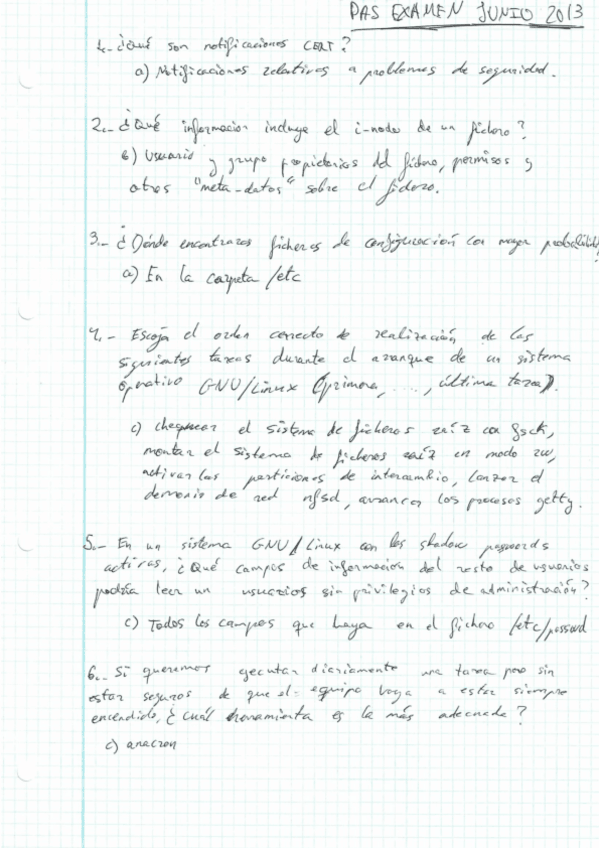 PAS EXAMEN JUNIO 2013
1.- ¿Qué son notificaciones CERT?
a) Notificaciones relativas a problemas de seguridad.
2.- ¿Qué información incluye el i-nodo de un fichero?
b) Usuario y grupo propietarios del fichero, permisos y
otros "meta-datos" sobre el fichero.
3.- ¿Dónde encontraras ficheros de configuración con mayor probabilidad?
a) En la carpeta /etc
4.- Escoja el orden correcto de realización de las
siguientes tareas durante el arranque de un sistema
operativo GNU/Linux (primera, ..., última tarea).
c) chequear el sistema de ficheros raíz con fsck,
montar el sistema de ficheros raíz en modo rw,
activar las particiones de intercambio, lanzar el
demonio de red nfsd, arrancar los procesos getty.
5.- En un sistema GNU/Linux con las shadow passwords
activas, ¿Qué campos de información del resto de usuarios
podría leer un usuarios sin privilegios de administración?
c) Todos los campos que haya en el fichero /etc/passwd
6.- Si queremos ejecutar diariamente una tarea pero sin
estar seguros de que el equipo vaya a estar siempre
encendido, ¿cuál herramienta es la más adecuada?
c) anacron